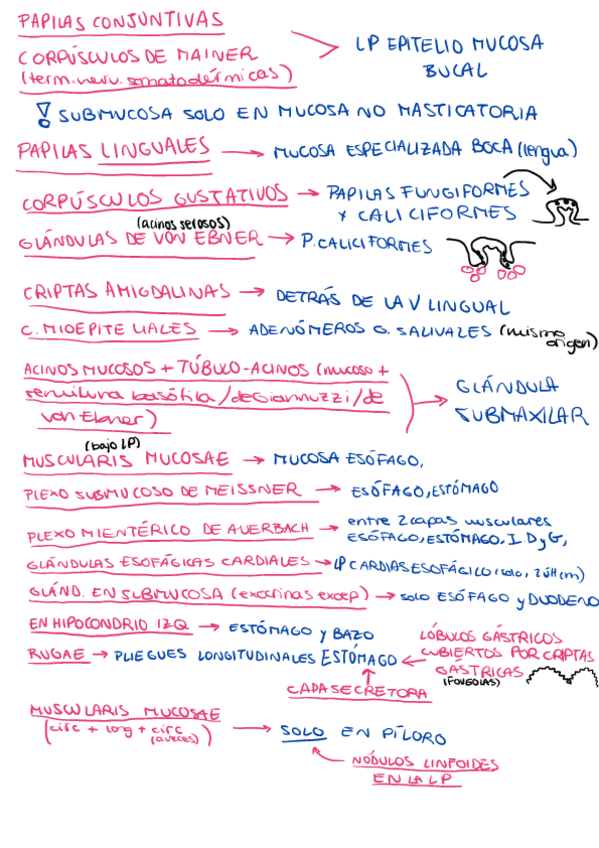 PAPILAS CONJUNTIVAS
CORPÚSCULOS DE MAINER
(term. nerv. somatodérmicas)
LP EPITELIO MUCOSA
BUCAL
! SUBMUCOSA SOLO EN MUCOSA NO MASTICATORIA
PAPILAS LINGUALES → MUCOSA ESPECIALIZADA BOCA (lengua)
CORPÚSCULOS GUSTATIVOS → PAPILAS FUNGIFORMES
Y CALICIFORMES
(acinos serosos)
GLÁNDULAS DE VON EBNER → P. CALICIFORMES
CRIPTAS AMIGDALINAS → DETRÁS DE LA V LINGUAL
C. MIOEPITELIALES → ADENÓMEROS G. SALIVALES (mismo
origen)
ACINOS MUCOSOS + TÚBULO-ACINOS (mucoso +
semiluna basófila/de Giannuzzi/de
von Ebner)
GLÁNDULA
SUBMAXILAR
(bajo LP)
MUSCULARIS MUCOSAE → MUCOSA ESÓFAGO,
PLEXO SUBMUCOSO DE MEISSNER → ESÓFAGO, ESTÓMAGO
PLEXO MIENTÉRICO DE AUERBACH → entre 2 capas musculares
ESÓFAGO, ESTÓMAGO, I D y G,
GLÁNDULAS ESOFÁGICAS CARDIALES → LP CARDIAS ESOFÁGICO (solo, cm)
GLÁND. EN SUBMUCOSA (exocrinas excep) → SOLO ESÓFAGO y DUODENO
EN HIPOCONDRIO IZQ → ESTÓMAGO y BAZO
RUGAE → PLIEGUES LONGITUDINALES ESTÓMAGO ←
LÓBULOS GÁSTRICOS
CUBIERTOS POR CRIPTAS
GÁSTRICAS
(FOVEOLAS)
CADA SECRETORA
MUSCULARIS MUCOSAE
(circ + long + circ
(a veces))
→ SOLO EN PÍLORO
NÓDULOS LINFOIDES
EN LA LP